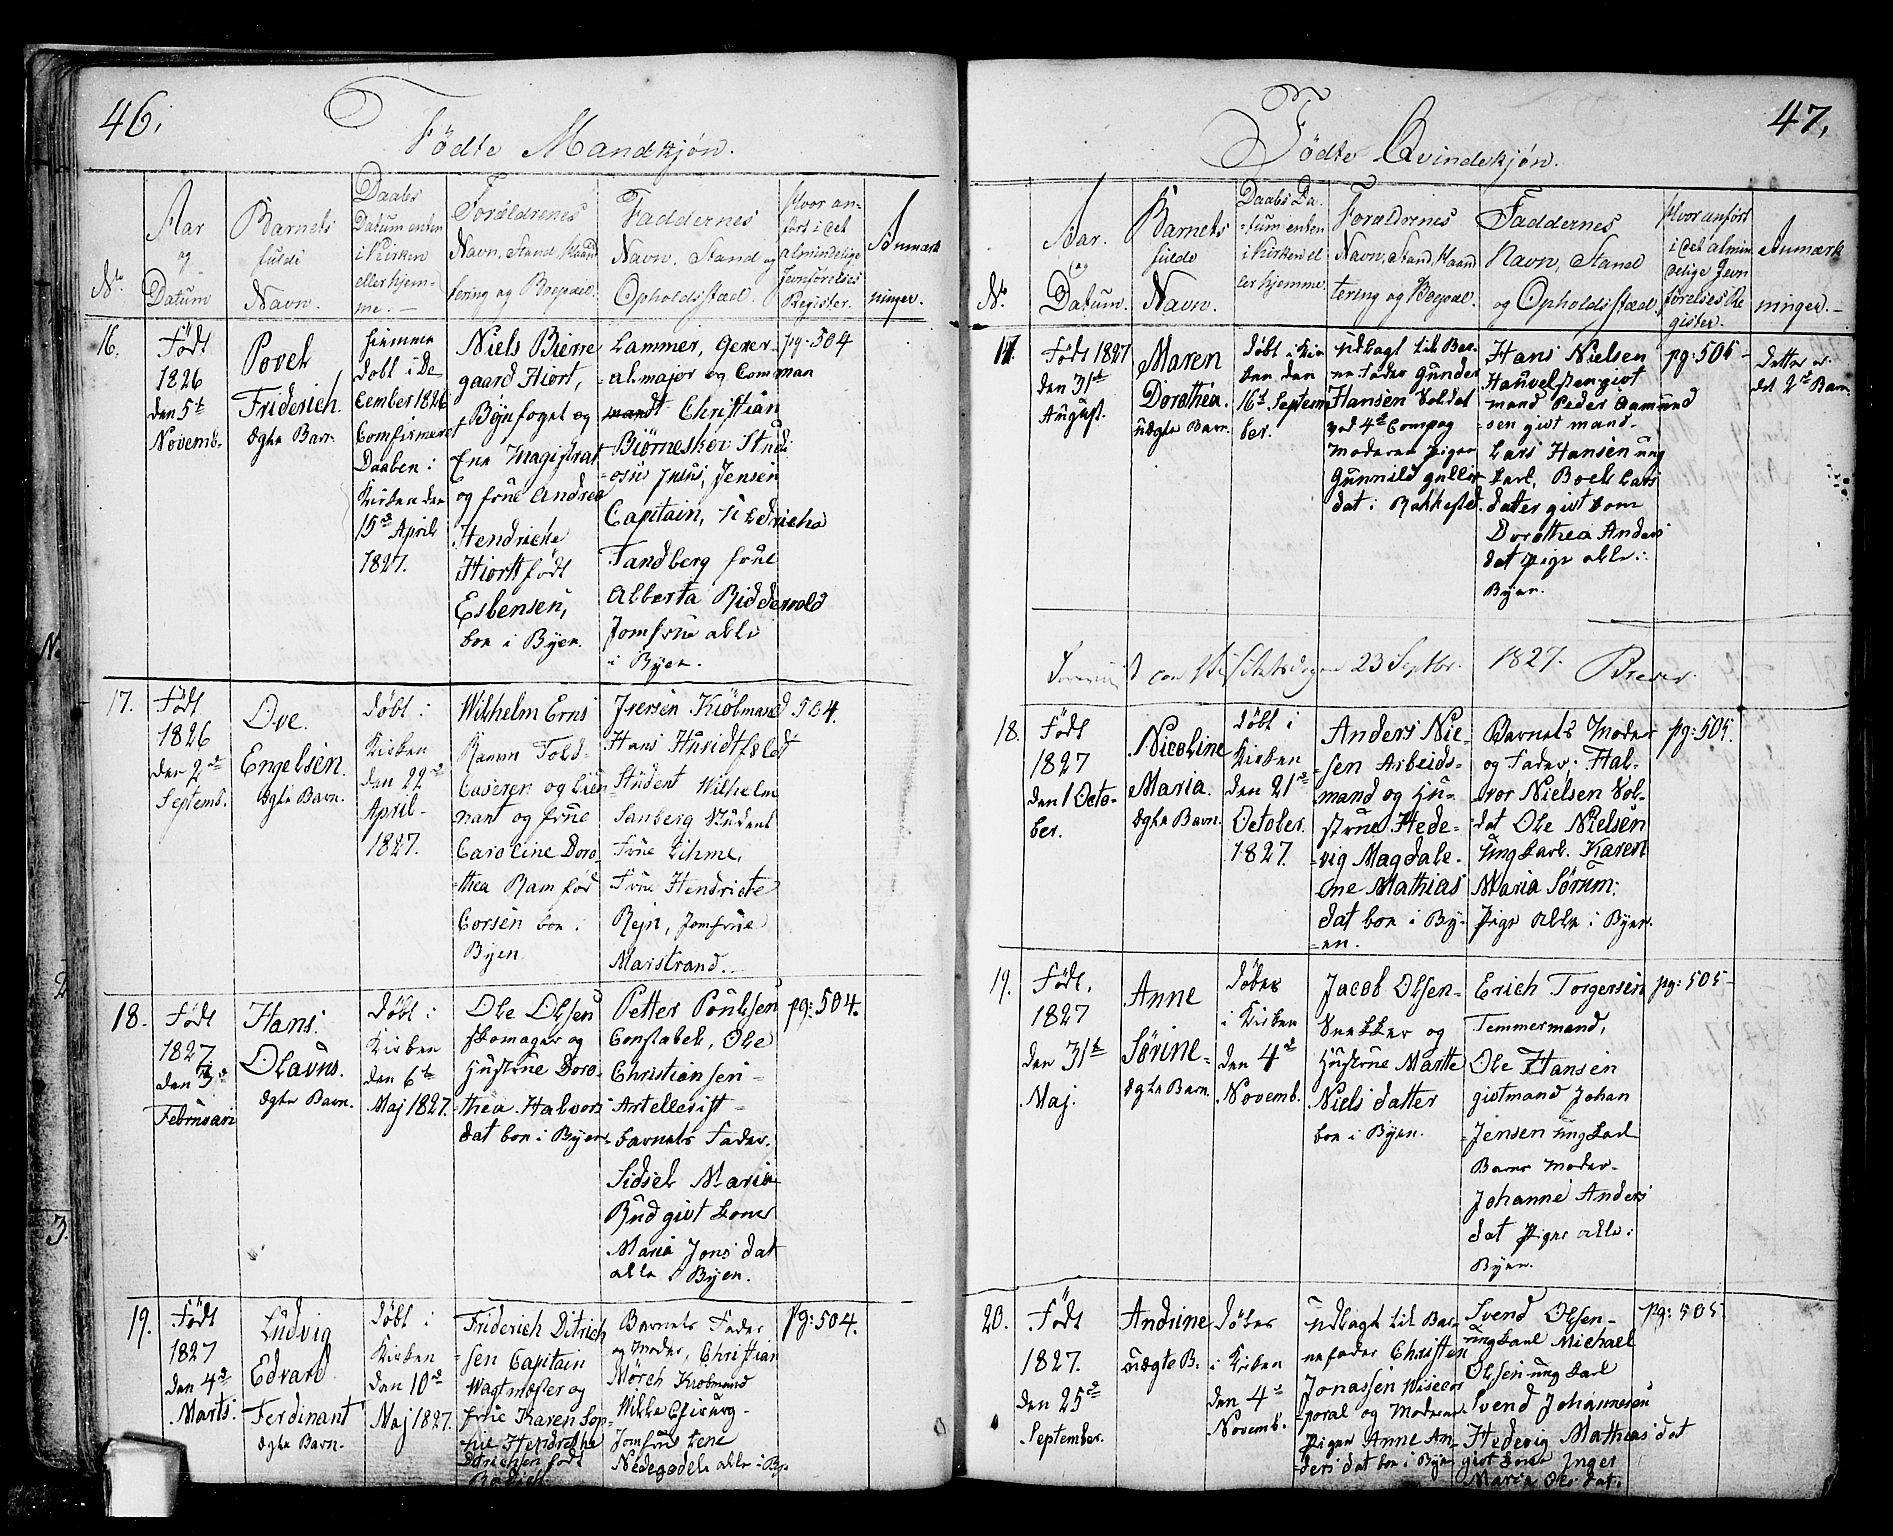 46.
Fødte Mandkjøn.
No.
Aar
og
Datum
Barnets
fulde
Navn.
Daabs
Datum enten
i Kirken
eller hjem-
me.
Forældrenes
Navn, Stand, Haand
tering og Bopæl.
Faddernes
Navn, Stand og
Opholdssted.
Hvor an-
ført i det
almindelige
Jevnførelses
Register.
Anmærk
ninger.
16.
Født
1826
den 5te
Novemb.
Povel
Friderich.
Ægte Barn.
hjemme
døbt i De
cember 1826
Comfirmeret
Daaben i
Kirken den
15de April
1827.
Niels Bierre
gaard Hiort,
Byefoget og
Ene Magistrat
og frue Andrea
Hendricke
Hiort født
Esbensen,
boe i Byen.
Lammer, Gener-
almajor og Comman
mandt Christian
Biørneskov Stud:
osus Jusus, Jensen
Capitain,
Tandberg frue
Alberta Ridderwold
Jomfrue alle
i Byen.
pg. 504
17.
Født
1826
den 2de
Septemb.
Ove
Engelsen.
Ægte Barn.
Døbt i
Kirken
den 22de
April
1827.
Wilhelm Erns
Ramm Told-
Caseren og Lieu
nant og frue
Caroline Doro-
thea Ram fød
Corsen boe i
Byen
Iversen Kiöbmand
Hans Husidtfeldt
Student Wilhelm
Sanberg Student
Frue Lihme,
Frue Hendricte
Rejn, Jomfrue
Marstrand.
504.
18.
Født
1827.
den 3de
Februari
Hans
Olavus.
Ægte Barn.
Døbt i
Kirken
den 6te
Maj 1827.
Ole Olsen
Skomager og
Hustrue Doro-
thea Halvors
dat boe i Byen
Petter Poulsen
Constabel, Ole
Christiansen
Artellerist
barnets Fader.
Sidsel Maria
Rud givt kone
Maria Jons dat
alle i Byen.
pg: 504.
19.
Født
1827
den 4de
Marts.
Ludvig
Edvard
Ferdinant
Ægte Barn.
Døbt i
Kirken
den 10de
Maj 1827.
Friderich Ditrich
sen Capitain
Wagtmester og
frue Karen Sop-
hie Hendrekke
Ditrichsen født
Barnets Fader
og Moder, Christian
Mörch Kiobmand
Wikke Chirurg
Jomfrue Lene
Nedegodtle alle i By.
pg: 504.
47.
Fødte Qvindekjøn.
No.
Aar.
og
Datum.
Barnets
fulde
Navn.
Daabs Da-
tum enten
i Kirken el
ler hjemme
Forældrenes
Navn, Stand, Haand
tering og Bopæl.
Faddernes
Navn, Stand
og Opholdssted.
Hvor anført
i det almin
delige Jevn
førelses Re
gister.
Anmærk
ninger.
17.
Født 1827
den 31te
August.
Maren
Dorothea.
uægte Barn.
Døbt i Kir
ken den
16de Septem
ber.
udlagt til Bar-
ne fader Gunder
Hansen Soldat
ved 4de Compag
Moderen pigen
Gunnild Guller
dat i Rakkestd.
Hans Nielsen
Hauvelsten givt
mand Peder Aamund
sen givt mand.
Lars Hansen ung
karl, Boel Lars
datter givt kone
Dorothea Anders
dat pige alle i
Byen.
pg: 505
dette er
det 2de Barn
Visitatsdagen 23 Septbr. 1827.
18.
Født
1827
den 1 Octo-
ber.
Nicoline
Maria.
Ægte Barn.
Døbt i
Kirken
den 21de
October
1827.
Anders Niel-
sen Arbeids-
mand og Hu-
strue Hede-
vig Magdale-
ne Mathias
dat boe i By-
en.
Barnets Moder
og Fader, Hal-
vor Nielsen Sol-
dat Ole Nielsen
ung karl. Karen
Maria Sørum
Pige alle i Byen.
pg: 505.
19.
Født,
1827
den 31te
Maj.
Anne
Sørine
Ægte Barn.
Døbes
i Kirken
den 4de
Novemb.
Jacob Olsen
Snekker og
Hustrue Marte
Niels datter
boe i Byen.
Erich Torgersen
Temmermand,
Ole Hansen
givtmand Johan
Jensen ung karl
Barns Moder
Johanne Anders
dat Pige alle i
Byen.
pg: 505
20.
Født
1827.
den 25de
September.
Andrine
uægte B.
Døbes
i Kirken
den 4de
Novemb.
udlagt til Bar-
nefader Christen
Jonassen Wisecor
poral og Moderen
Pigen Anne An-
ders dat boe i Byen
Svend Olsen
ung karl Michael
Olsen ung karl
Svend Johannesen
Hedevig Mathias dat
givt kone Inger
Maria Ols dat.
pg: 505.